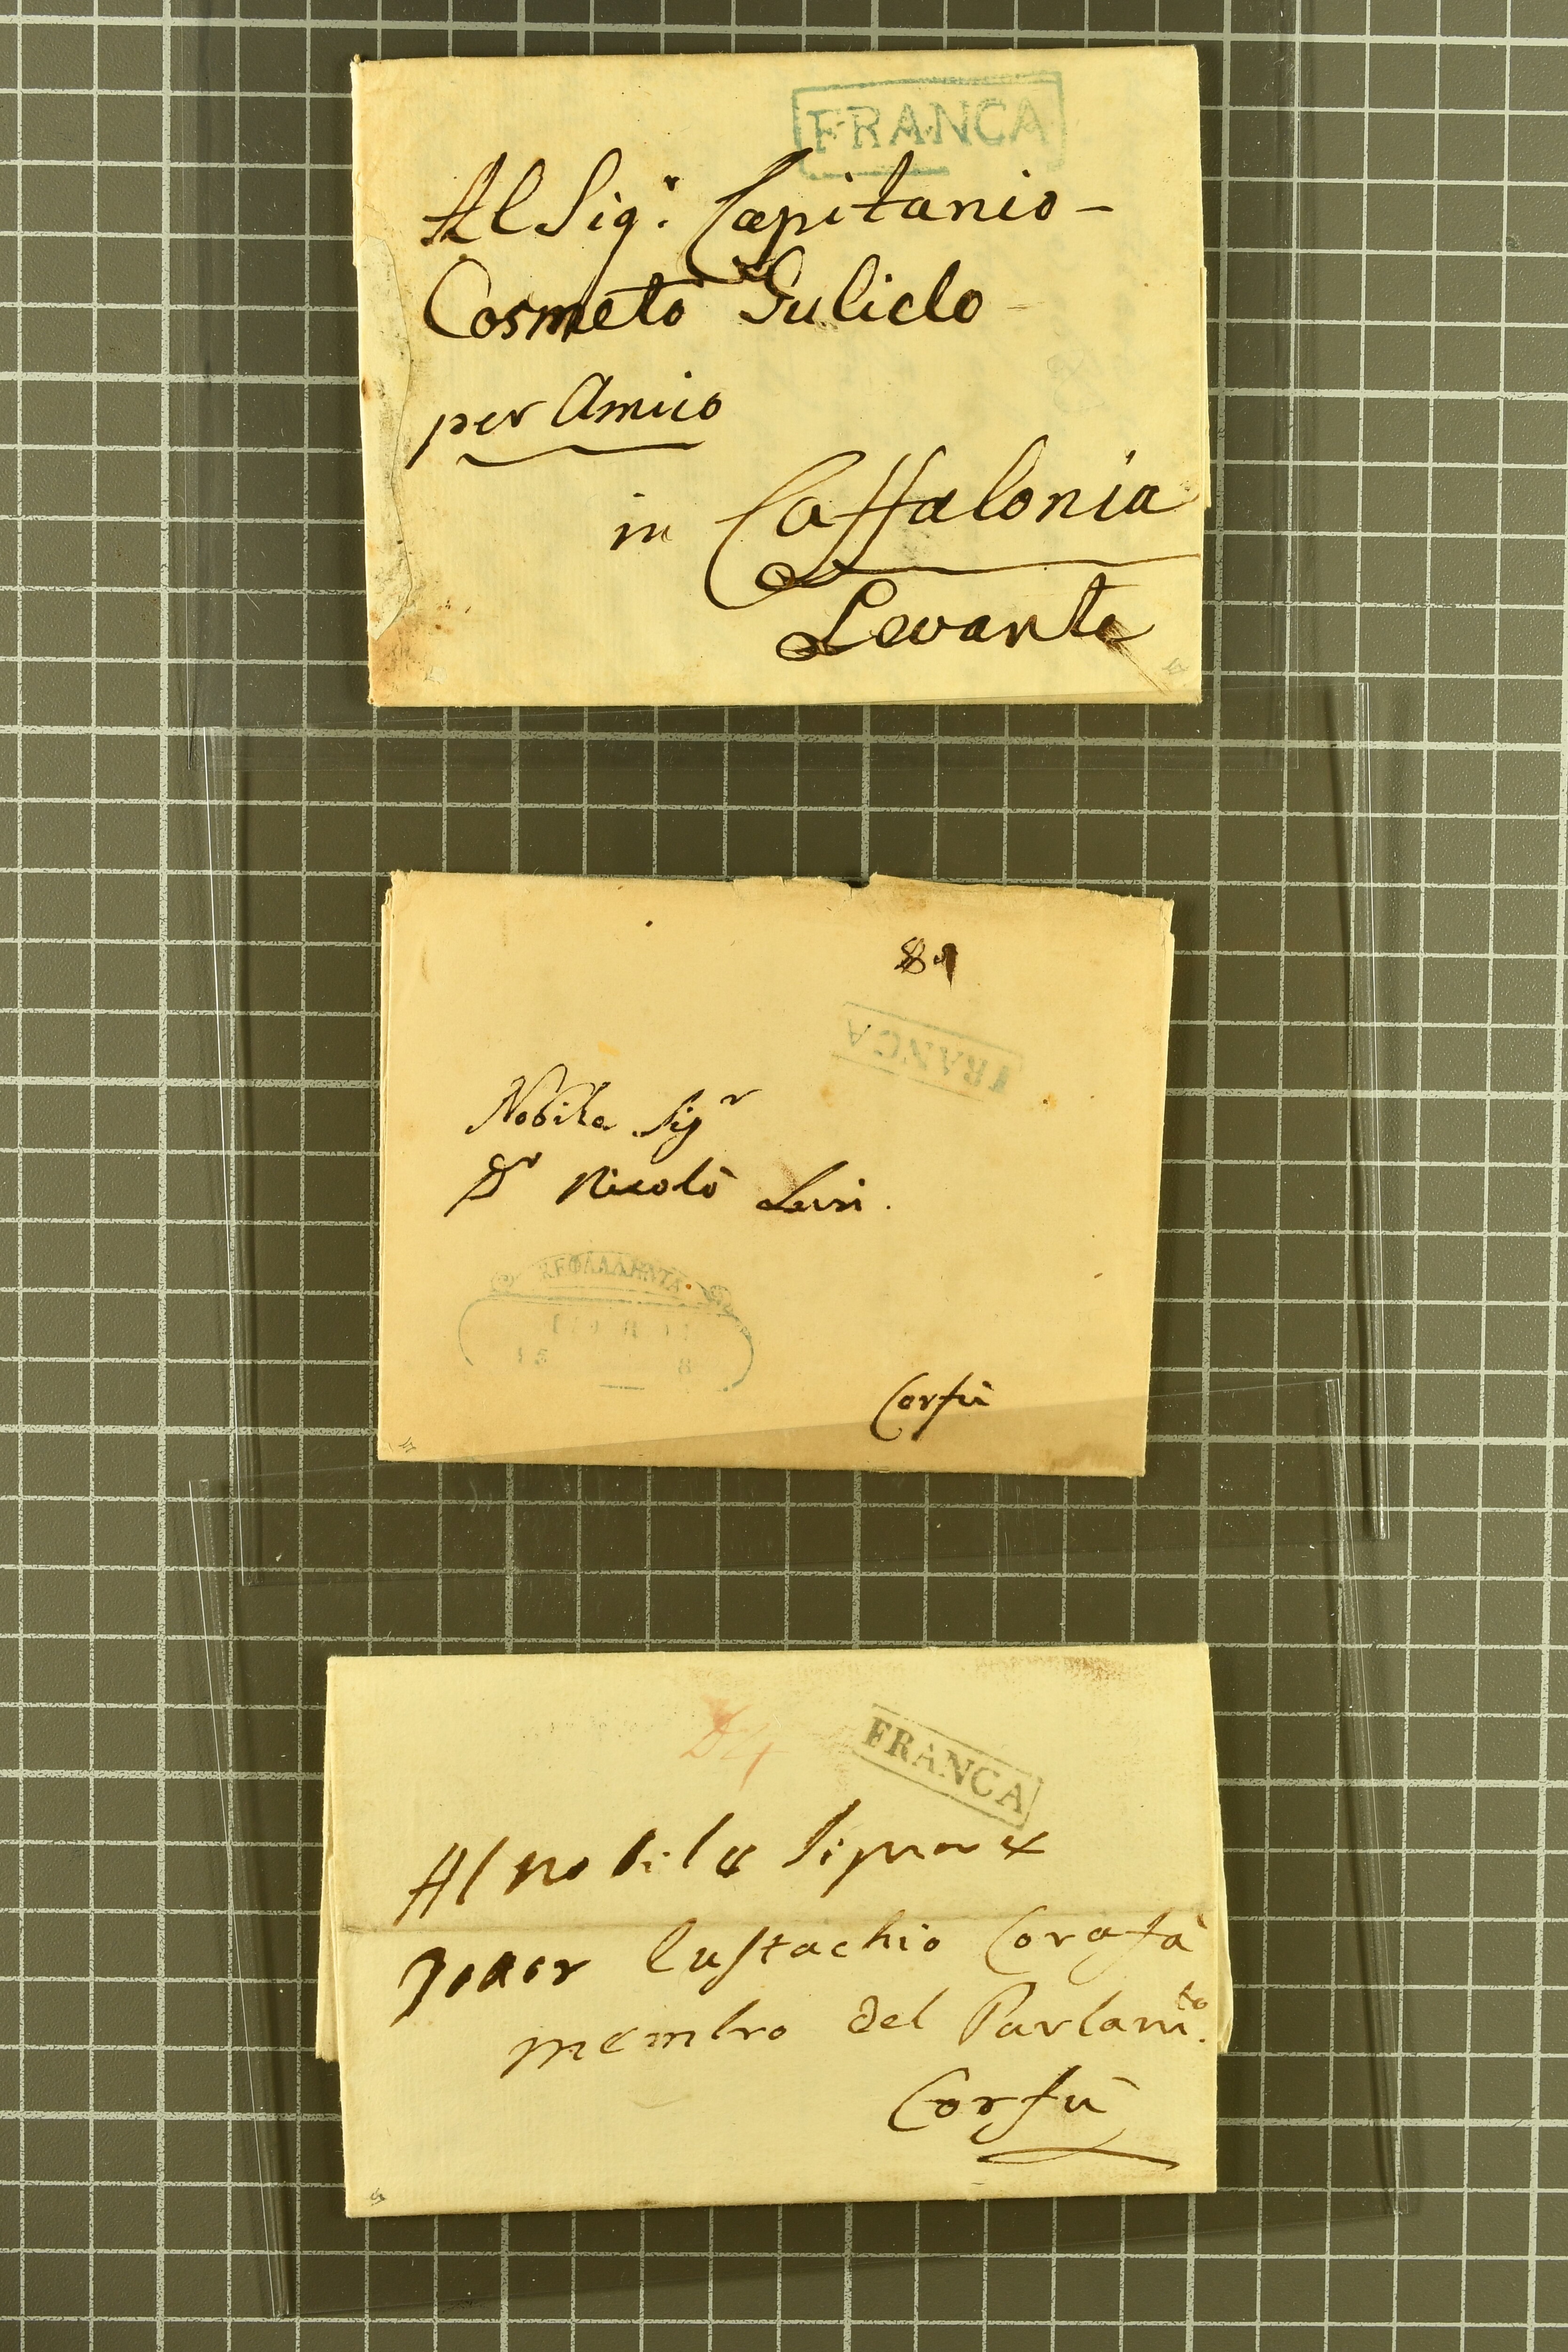 FRANCA
Al Sig.r Capitanio -
Cosmeto Sulielo
per Amico
in Caffalonia
Levante
FRANCA
Nobile Sigr
Dr Nicolò Levi.
ΚΕΦΑΛΛΗΝΙΑ
15 8
Corfù
FRANCA
Al nobile Signore
Eustachio Corafà
membro del Parlamto.
Corfù